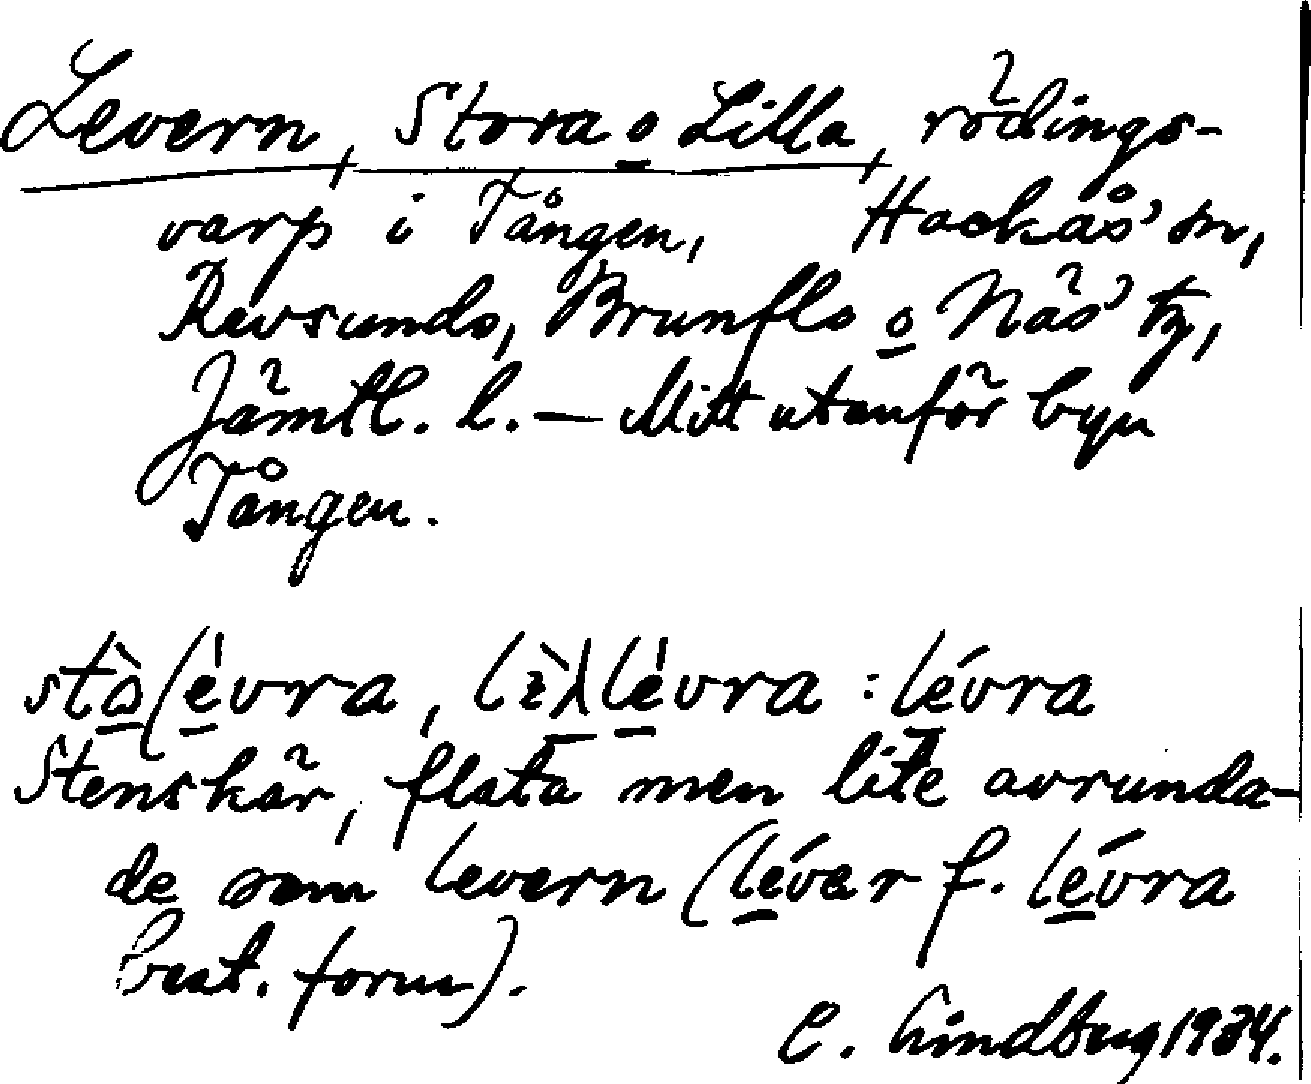 Levern, Stora o Lilla, rödings-
varp i Tången, Hackås' sn,
Revsunds, Brunflo o Näs' tg,
Jämtl. l. — Mitt utanför byn
Tången.
lévra
Stenskär, flata men lite avrunda-
de som levern (léver f. lévra
best. form).
C. Lindberg 1934.